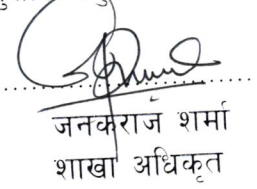 जनकराज शर्मा
शाखा अधिकृत